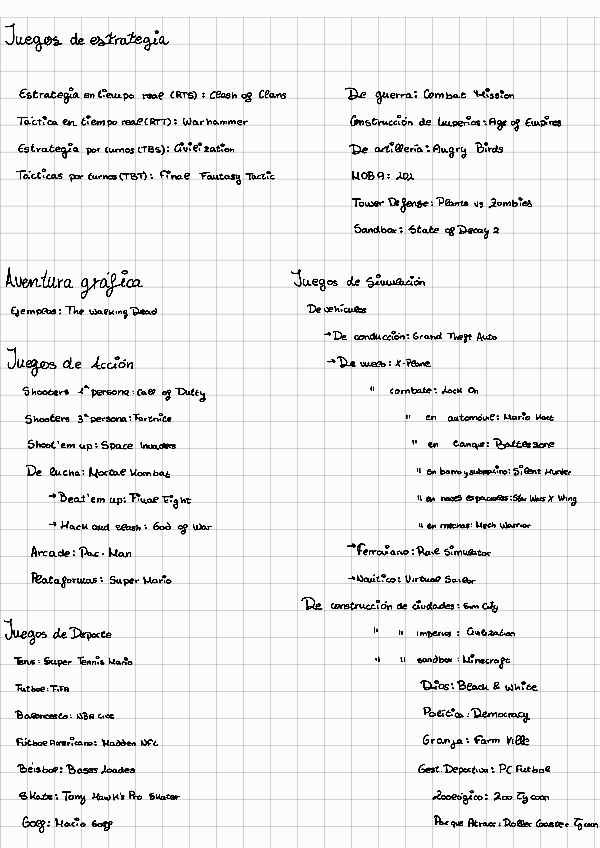 Juegos de estrategia
Estrategia en tiempo real (RTS) : Clash of Clans
Táctica en tiempo real (RTT) : Warhammer
Estrategia por turnos (TBS) : Civilization
Tácticas por turnos (TBT) : Final Fantasy Tactic
De guerra: Combat Mission
Construcción de Imperios : Age of Empires
De artillería : Augry Birds
MOBA : LOL
Tower Defense: Plants vs Zombies
Sandbox : State of Decay 2
Aventura gráfica
Ejemplos : The Walking Dead
Juegos de Acción
Shooters 1ª persona : Call of Dutty
Shooters 3ª persona : Fortnite
Shoot'em up : Space Invaders
De lucha : Mortal Kombat
→ Beat'em up : Final Fight
→ Hack and slash : God of War
Arcade : Pac-Man
Plataformas : Super Mario
Juegos de Deporte
Tenis : Super Tennis Mario
Futbol : FIFA
Baloncesto : NBA Live
Fútbol Americano : Madden NFL
Béisbol : Bases Loades
Skate : Tony Hawk's Pro Skater
Golf : Mario Golf
Juegos de Simulación
De vehículos
→ De conducción : Grand Theft Auto
→ De vuelo : X-Plane
" combate : Lock On
" en automóvil : Mario Kart
" en tanque : Battlezone
" en barco y submarino : Silent Hunter
" en naves espaciales : Star Wars X Wing
" en mechas : Mech Warrior
→ Ferroviario : Rail Simulator
→ Naútico : Virtual Sailor
De construcción de ciudades : Sim City
" " imperios : Civilization
" " sandbox : Minecraft
Dios : Black & White
Política : Democracy
Granja : Farm Ville
Gest. Deportiva : PC Futbol
Zoológico : Zoo Tycoon
Parque Atracc : Roller Coaster Tycoon